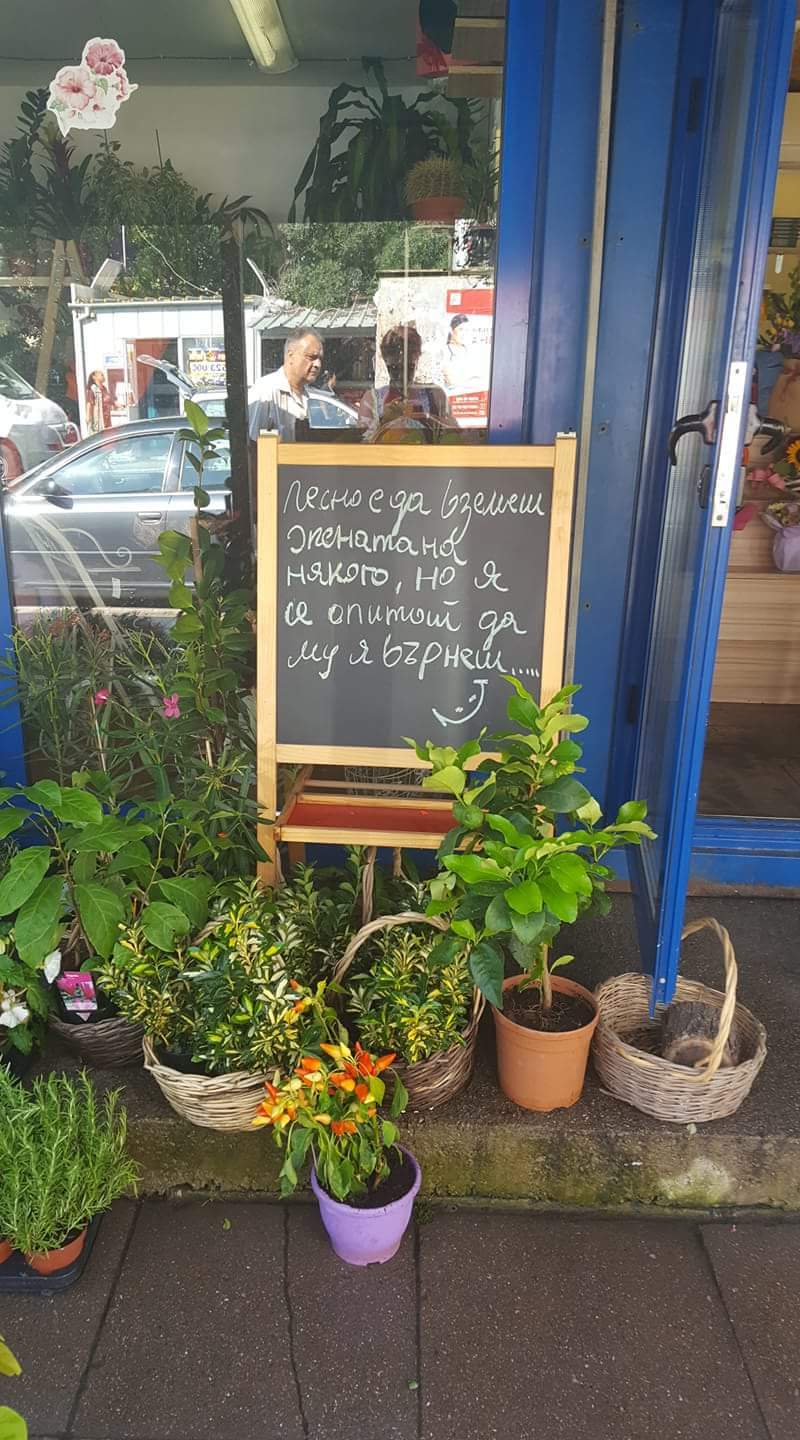 Лесно е да вземеш
жената на
някого, но я
се опитай да
му я върнеш.....